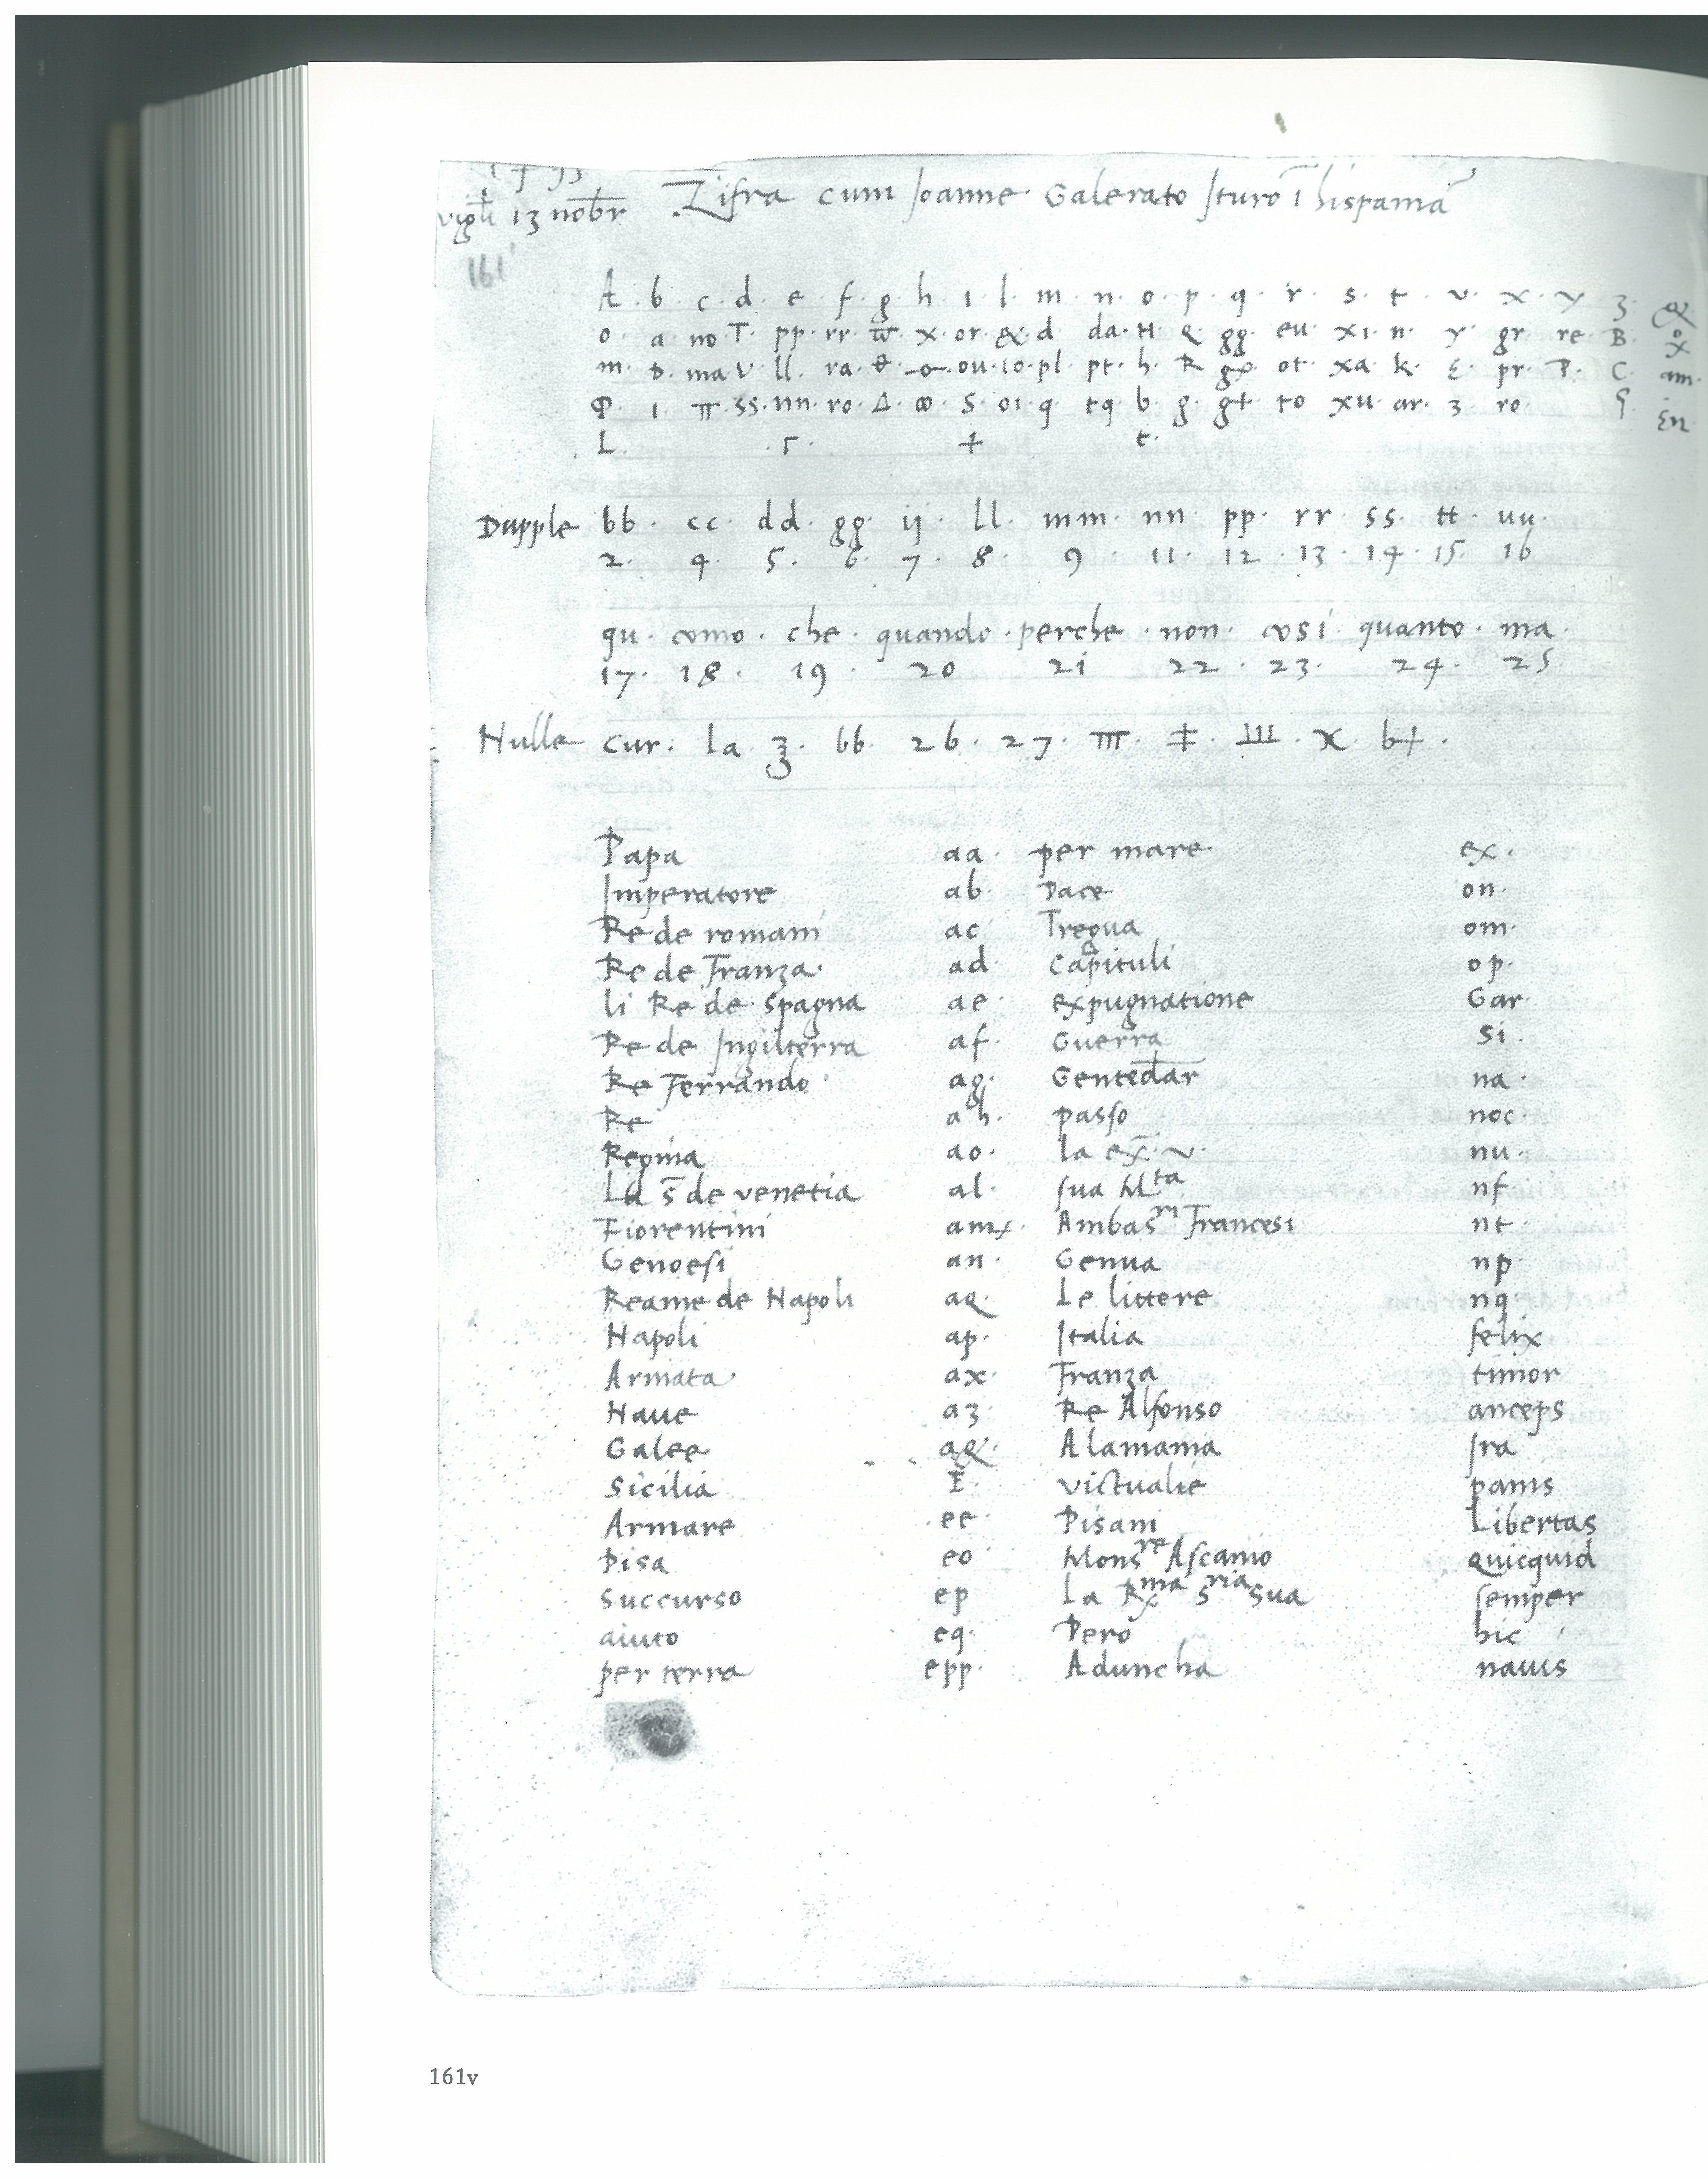 1495
vigli 13 nobr Zifra cum Joanne Galerato sturo ī hispania
161
A · b · c · d · e · f · g · h · i · l · m · n · o · p · q · r · s · t · v · x · y · z · &
o · a · no · T · pp · rr · w̄ · x · or · & · d · da · H · Q · gg · eu · xi · n · y · gr · re · B · x
m · D · ma · V · ll · ra · ou · io · pl · pt · h · R · ot · xa · k · Σ · pr · P · C · am
Φ · i · π · ss · nn · ro · Δ · ꝏ · S · oi · q · tq · b · g · g+ · to · xu · ar · 3 · ro · ς · En
L · Γ · + · t ·
Dapple bb · cc · dd · gg · ij · ll · mm · nn · pp · rr · ss · tt · uu ·
2 · 4 · 5 · 6 · 7 · 8 · 9 · 11 · 12 · 13 · 14 · 15 · 16
qu · como · che · quando · perche · non · cosi · quanto · ma ·
17 · 18 · 19 · 20 21 22 · 23 · 24 · 25
Nulle cur · la · ʒ · bb · 26 · 27 · ‡ · x · b+ ·
Papa aa · per mare ex ·
Imperatore ab · Pace on ·
Re de romani ac Tregua om ·
Re de Franza · ad Capituli op ·
li Re de Spagna ae · expugnatione Gar ·
Re de Ingilterra af · Guerra Si ·
Re Ferrando ag · Gentedar na ·
Re ah · passo noc ·
Regina ao · la ex. v · nu ·
La s̄ de venetia al · sua Mta nf
Fiorentini am · Ambasri Francesi nt ·
Genoesi an · Genua np ·
Reame de Napoli aq · Le littere nq
Napoli ap · Italia felix
Armata · ax · Franza timor
Naue az · Re Alfonso anceps
Galee a& · Alamania fra
Sicilia E · victualie panis
Armare ee · Pisani Libertas
Pisa eo Monsre Ascanio quicquid
Succurso ep La Rma Sria Sua semper
aiuto eq · Pero hic
per terra epp · Aduncha nauis
161v